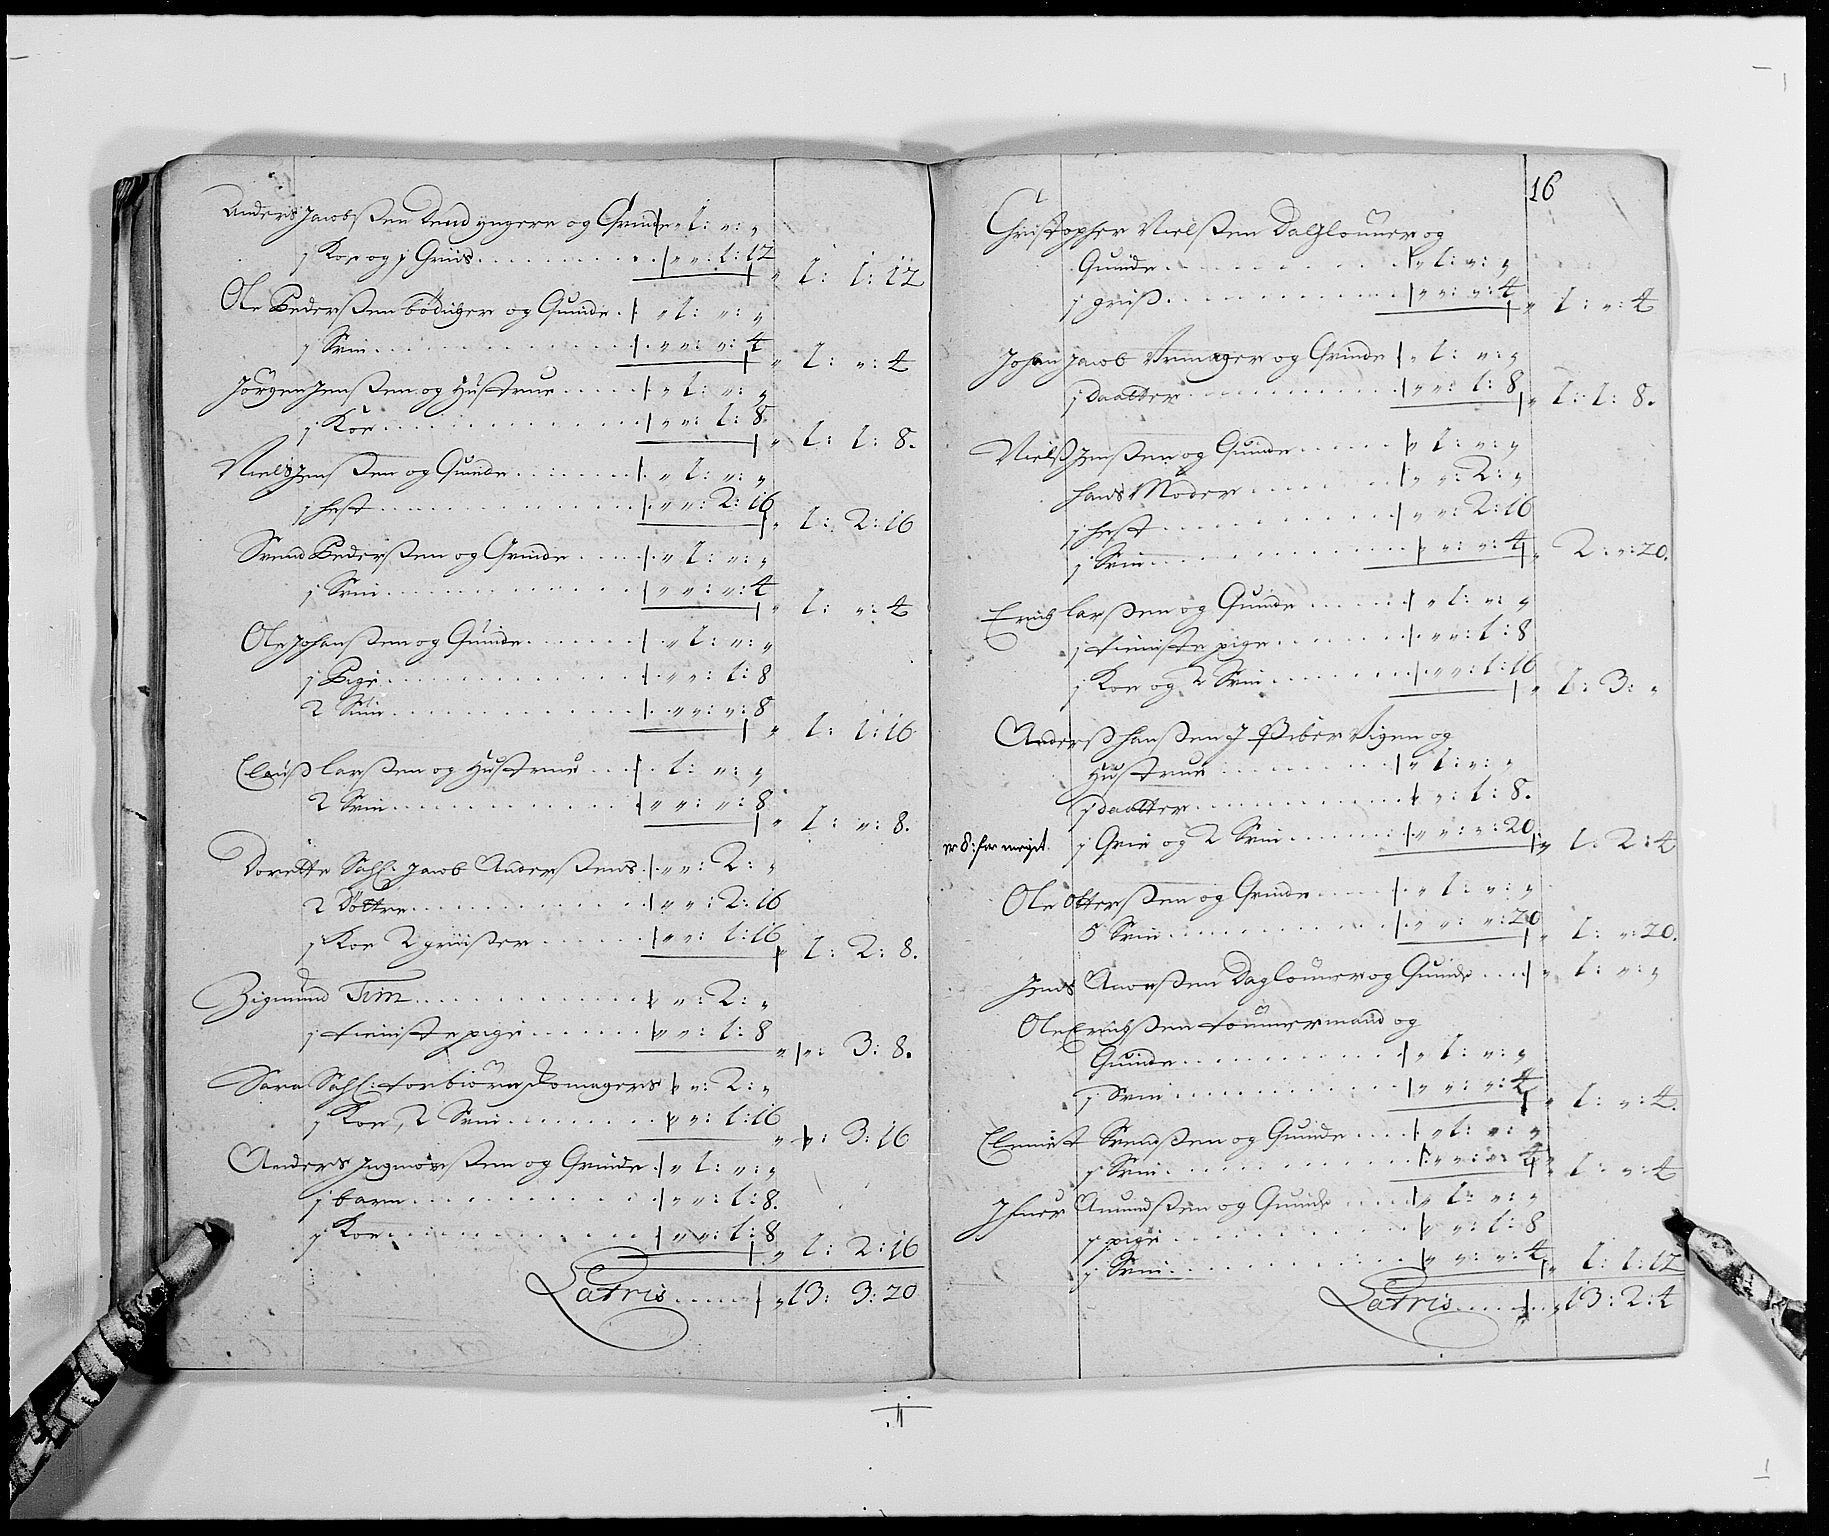 Anders Jacobßen dend yngere og Qvinde „ 1: „: „
j Koe og j Griis „ „: 1: 12 „ 1: 1: 12
Ole Pederßen bödicher og Quinde „ 1: „: „
j Svin „ „: „: 4 „ 1: „: 4
Jörgen Jenßen og Hustrue „ 1: „: „
j Koe „ „: 1: 8. „ 1: 1: 8.
Niels Jenßen og Quinde „ 1: „: „
j hest „ „: 2: 16 „ 1: 2: 16
Svend Pederßen og Qvinde „ 1: „: „
j Svin „ „: „: 4 „ 1: „: 4
Ole Johanßen og Quinde „ 1: „: „
j Pige „ „: 1: 8
2 Svin „ „: „: 8 „ 1: 1: 16
Clauß larßen og Hustrue 1: „: „
2 Svin „ „: „: 8 „ 1: „: 8.
Dorette Sahl: Jacob Anderßens „ „: 2: „
2 Döttre „ „: 2: 16
j Koe 2 grißer „ „: 1: 16 „ 1: 2: 8.
Zigmund Tim „: 2: „
j tieniste pige „: 1: 8 „ „: 3: 8.
Sara Sahl: torbiörn Skomagers „: 2: „
j Koe, 2 Svin „: 1: 16 „ „: 3: 16
Anders Ingmorßen og Qvinde „ 1: „: „
j barn „ „: 1: 8.
j Koe „ „: 1: 8 „ 1: 2: 16
Latris „ 13: 3: 20
16
Christopher Nielßen Daglönner og
Quinde „ 1: „: „
j griß „ „: „: 4 „ 1: „: 4
Johan Jacob Urmager og Qvinde „ 1: „: „
j daatter „ „: 1: 8 „ 1: 1: 8.
Nielß Jenßen og Quinde 1: „: „
hans Moder „ „: 2: „
j hest „ „: 2: 16
j Svin „: „: 4 „ 2: „: 20.
Erich larßen og Quinde „ 1: „: „
j tieniste pige „ „: 1: 8
j Koe og 2 Svin „ „: 1: 16 „ 1: 3: „
Anderß hanßen J Piber Vigen og
Hustrue „ 1: „: „
j daatter „: 1: 8.
er 8: for meget. j Qvie og 2 Svin „ „: „: 20 „ 1: 2: 4
Ole Otterßen og Qvinde „ 1: „: „
5 Svin „ „: „: 20 „ 1: „: 20.
Jens Daglönner og Quinde „ 1: „: „
Ole Erichßen tömmermand og
Quinde „ 1: „: „
j Svin „ „: „: 4 „ 1: „: 4.
Clemet Svendßen og Quinde „ 1: „: „
j Svin „ „: „: 4 „ 1: „: 4
Jfuer Amundßen og Quinde „ 1: „: „
j pige „: 1: 8
j Svin „: „: 4 „ 1: 1: 12
Latris „ 13: 2: 4